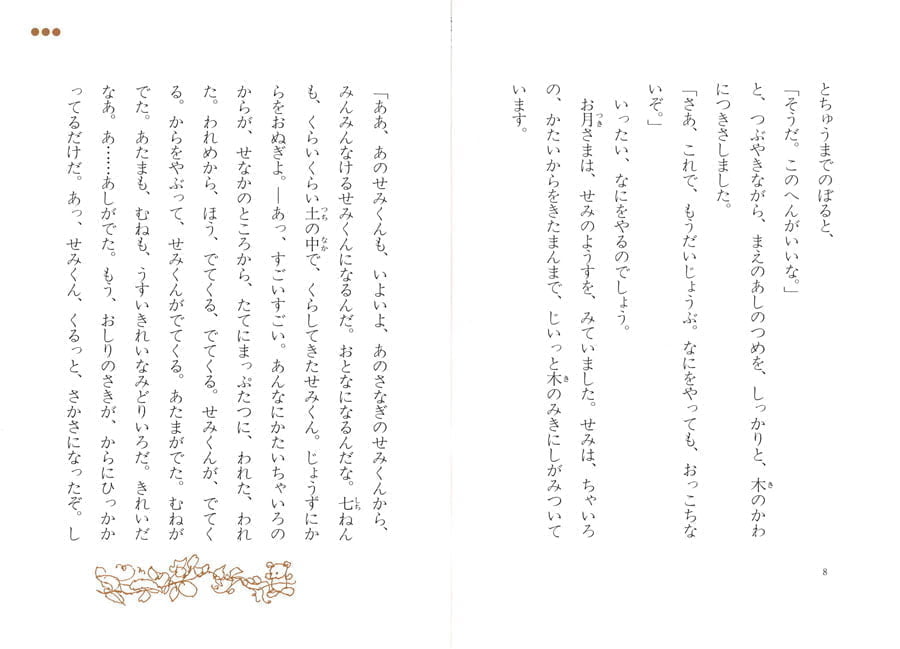 とちゅうまでのぼると、
「そうだ。このへんがいいな。」
と、つぶやきながら、まえのあしのつめを、しっかりと、木のかわ
につきさしました。
「さあ、これで、もうだいじょうぶ。なにをやっても、おっこちな
いぞ。」
いったい、なにをやるのでしょう。
お月さまは、せみのようすを、みていました。せみは、ちゃいろ
の、かたいからをきたまんまで、じいっと木のみきにしがみついて
います。
8
「ああ、あのせみくんも、いよいよ、あのさなぎのせみくんから、
みんみんなけるせみくんになるんだ。おとなになるんだな。七ねん
も、くらいくらい土の中で、くらしてきたせみくん。じょうずにか
らをおぬぎよ。―あっ、すごいすごい。あんなにかたいちゃいろの
からが、せなかのところから、たてにまっぷたつに、われた、われ
た。われめから、ほう、でてくる、でてくる。せみくんが、でてく
る。からをやぶって、せみくんがでてくる。あたまがでた。むねが
でた。あたまも、むねも、うすいきれいなみどりいろだ。きれいだ
なあ。あ……あしがでた。もう、おしりのさきが、からにひっかか
ってるだけだ。あっ、せみくん、くるっと、さかさになったぞ。し